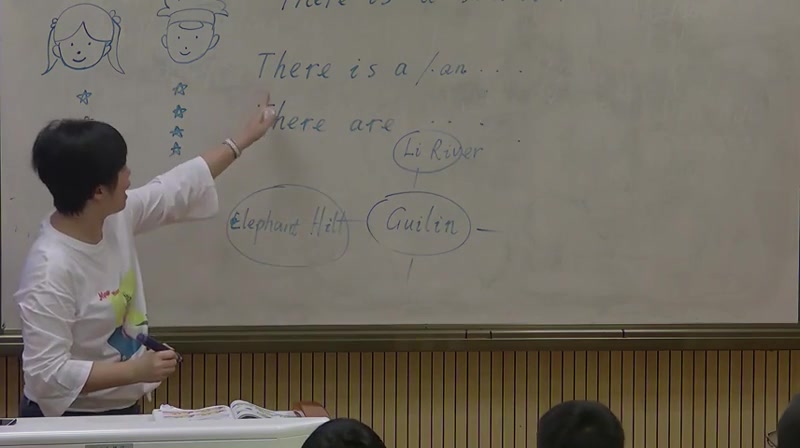 There is a
There is a /.an . . .
There are . . .
Li River
Elephant Hill
Guilin